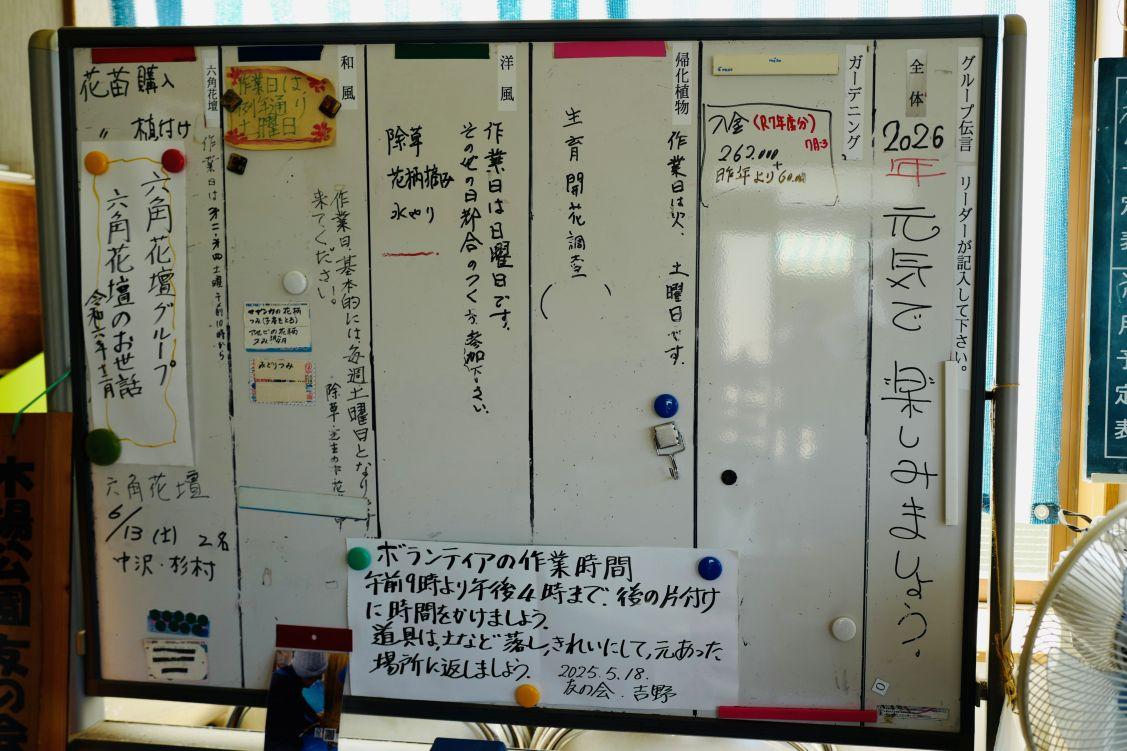 グループ伝言　リーダーが記入して下さい。
全体
2026
年
元気で 楽しみましょう。
ガーデニング
入金(R7年度分)
7月3
262.000
昨年より+60.000
帰化植物
作業日は火、土曜日です。
生育開花調査
(　)
洋風
作業日は日曜日です。
その他の日都合のつく方参加下さい。
除草
花柄摘み
水やり
和風
作業日は
例年通り
土曜日
作業日、基本的には毎週土曜日となります
来てください。
除草・
サザンカの花柄
つみ(子房をとる)
アセビの花柄
つみ
みどりつみ
六角花壇
作業日は第二・第四土曜
午前10時から
花苗購入
〃 植付け
六角花壇グループ
六角花壇のお世話
令和六年十二月
六角花壇
6/13(土) 2名
中沢・杉村
ボランティアの作業時間
午前9時より午後4時まで、後の片付け
に時間をかけましょう。
道具は、土など落し、きれいにして、元あった
場所に返しましょう。
2025.5.18.
友の会．吉野
木場公園友の会
予定表